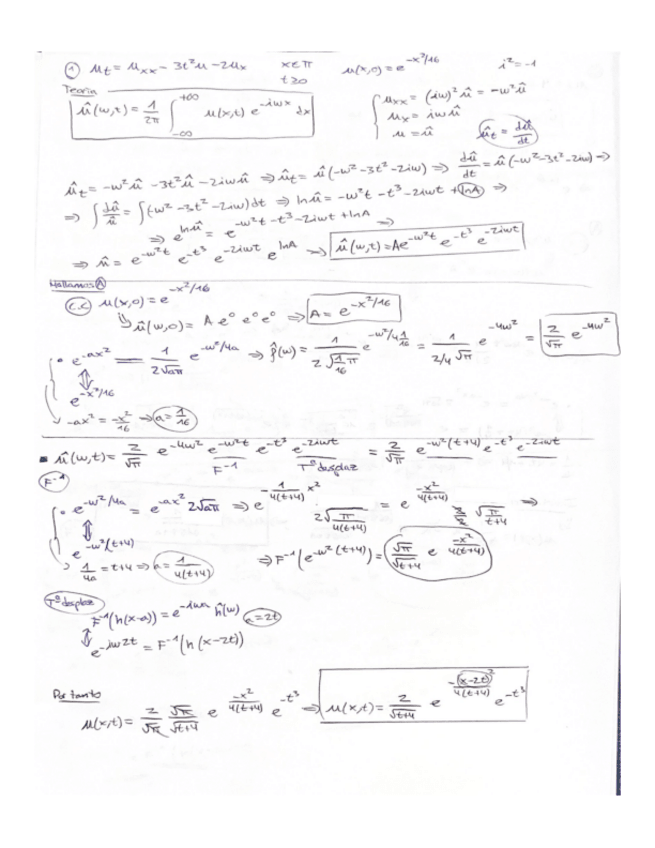 ① u_t = u_xx - 3t²u - 2u_x   x∈π   t≥0   u(x,0) = e^(-x²/16)   i² = -1
Teoría
û(w,t) = 1/2π ∫_{-∞}^{+∞} u(x,t) e^(-iwx) dx
{ u_xx = (iw)² û = -w²û
u_x = iwû
u = û   û_t = dû/dt
û_t = -w²û - 3t²û - 2iwû ⇒ û_t = û(-w² - 3t² - 2iw) ⇒ dû/dt = û(-w² - 3t² - 2iw) ⇒
⇒ ∫ dû/û = ∫(-w² - 3t² - 2iw) dt ⇒ ln û = -w²t - t³ - 2iwt + lnA ⇒
⇒ e^(ln û) = e^(-w²t - t³ - 2iwt + lnA) ⇒
⇒ û = e^(-w²t) e^(-t³) e^(-2iwt) e^(lnA) ⇒ û(w,t) = Ae^(-w²t) e^(-t³) e^(-2iwt)
Hallamos A
C.C u(x,0) = e^(-x²/16)
û(w,0) = A e⁰ e⁰ e⁰ ⇒ A = e^(-x²/16)
• e^(-ax²) = 1/(2√(aπ)) e^(-w²/4a) ⇒ f̂(w) = 1/(2√(1/16 π)) e^(-w²/4·1/16) = 1/(2/4 √π) e^(-4w²) = 2/√π e^(-4w²)
⇕
e^(-x²/16)
-ax² = -x²/16 ⇒ a = 1/16
▪ û(w,t) = 2/√π e^(-4w²) e^(-w²t) e^(-t³) e^(-2iwt) = 2/√π e^(-w²(t+4)) e^(-t³) e^(-2iwt)
F⁻¹   Tª desplaz
F⁻¹
• e^(-w²/4a) = e^(-ax²) 2√(aπ) ⇒ e^(-1/(4(t+4)) x²) · 2√(π/(4(t+4))) = e^(-x²/(4(t+4))) 2/2 √(π/(t+4)) ⇒
⇕
e^(-w²(t+4))
1/4a = t+4 ⇒ a = 1/(4(t+4))
⇒ F⁻¹(e^(-w²(t+4))) = √π/√(t+4) e^(-x²/(4(t+4)))
Tª desplaz
F⁻¹(h(x-a)) = e^(-iwa) ĥ(w)   a=2t
⇕
e^(-iw2t) = F⁻¹(h(x-2t))
Por tanto
u(x,t) = 2/√π √π/√(t+4) e^(-x²/(4(t+4))) e^(-t³) ⇒ u(x,t) = 2/√(t+4) e^(-(x-2t)²/(4(t+4))) e^(-t³)